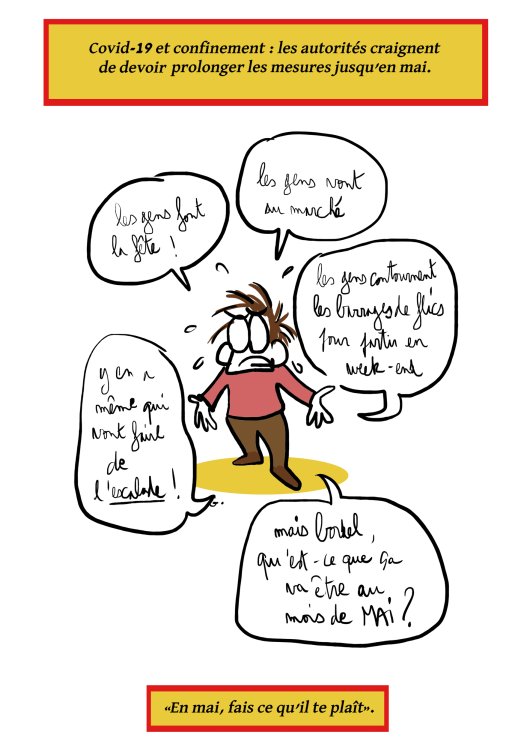 Covid-19 et confinement : les autorités craignent
de devoir prolonger les mesures jusqu'en mai.
les gens vont
au marché
les gens font
la fête !
les gens contournent
les barrages de flics
pour partir en
week-end
y en a
même qui
vont faire
de
l'escalade !
G.
mais bordel,
qu'est-ce que ça
va être au
mois de MAI ?
«En mai, fais ce qu'il te plaît».